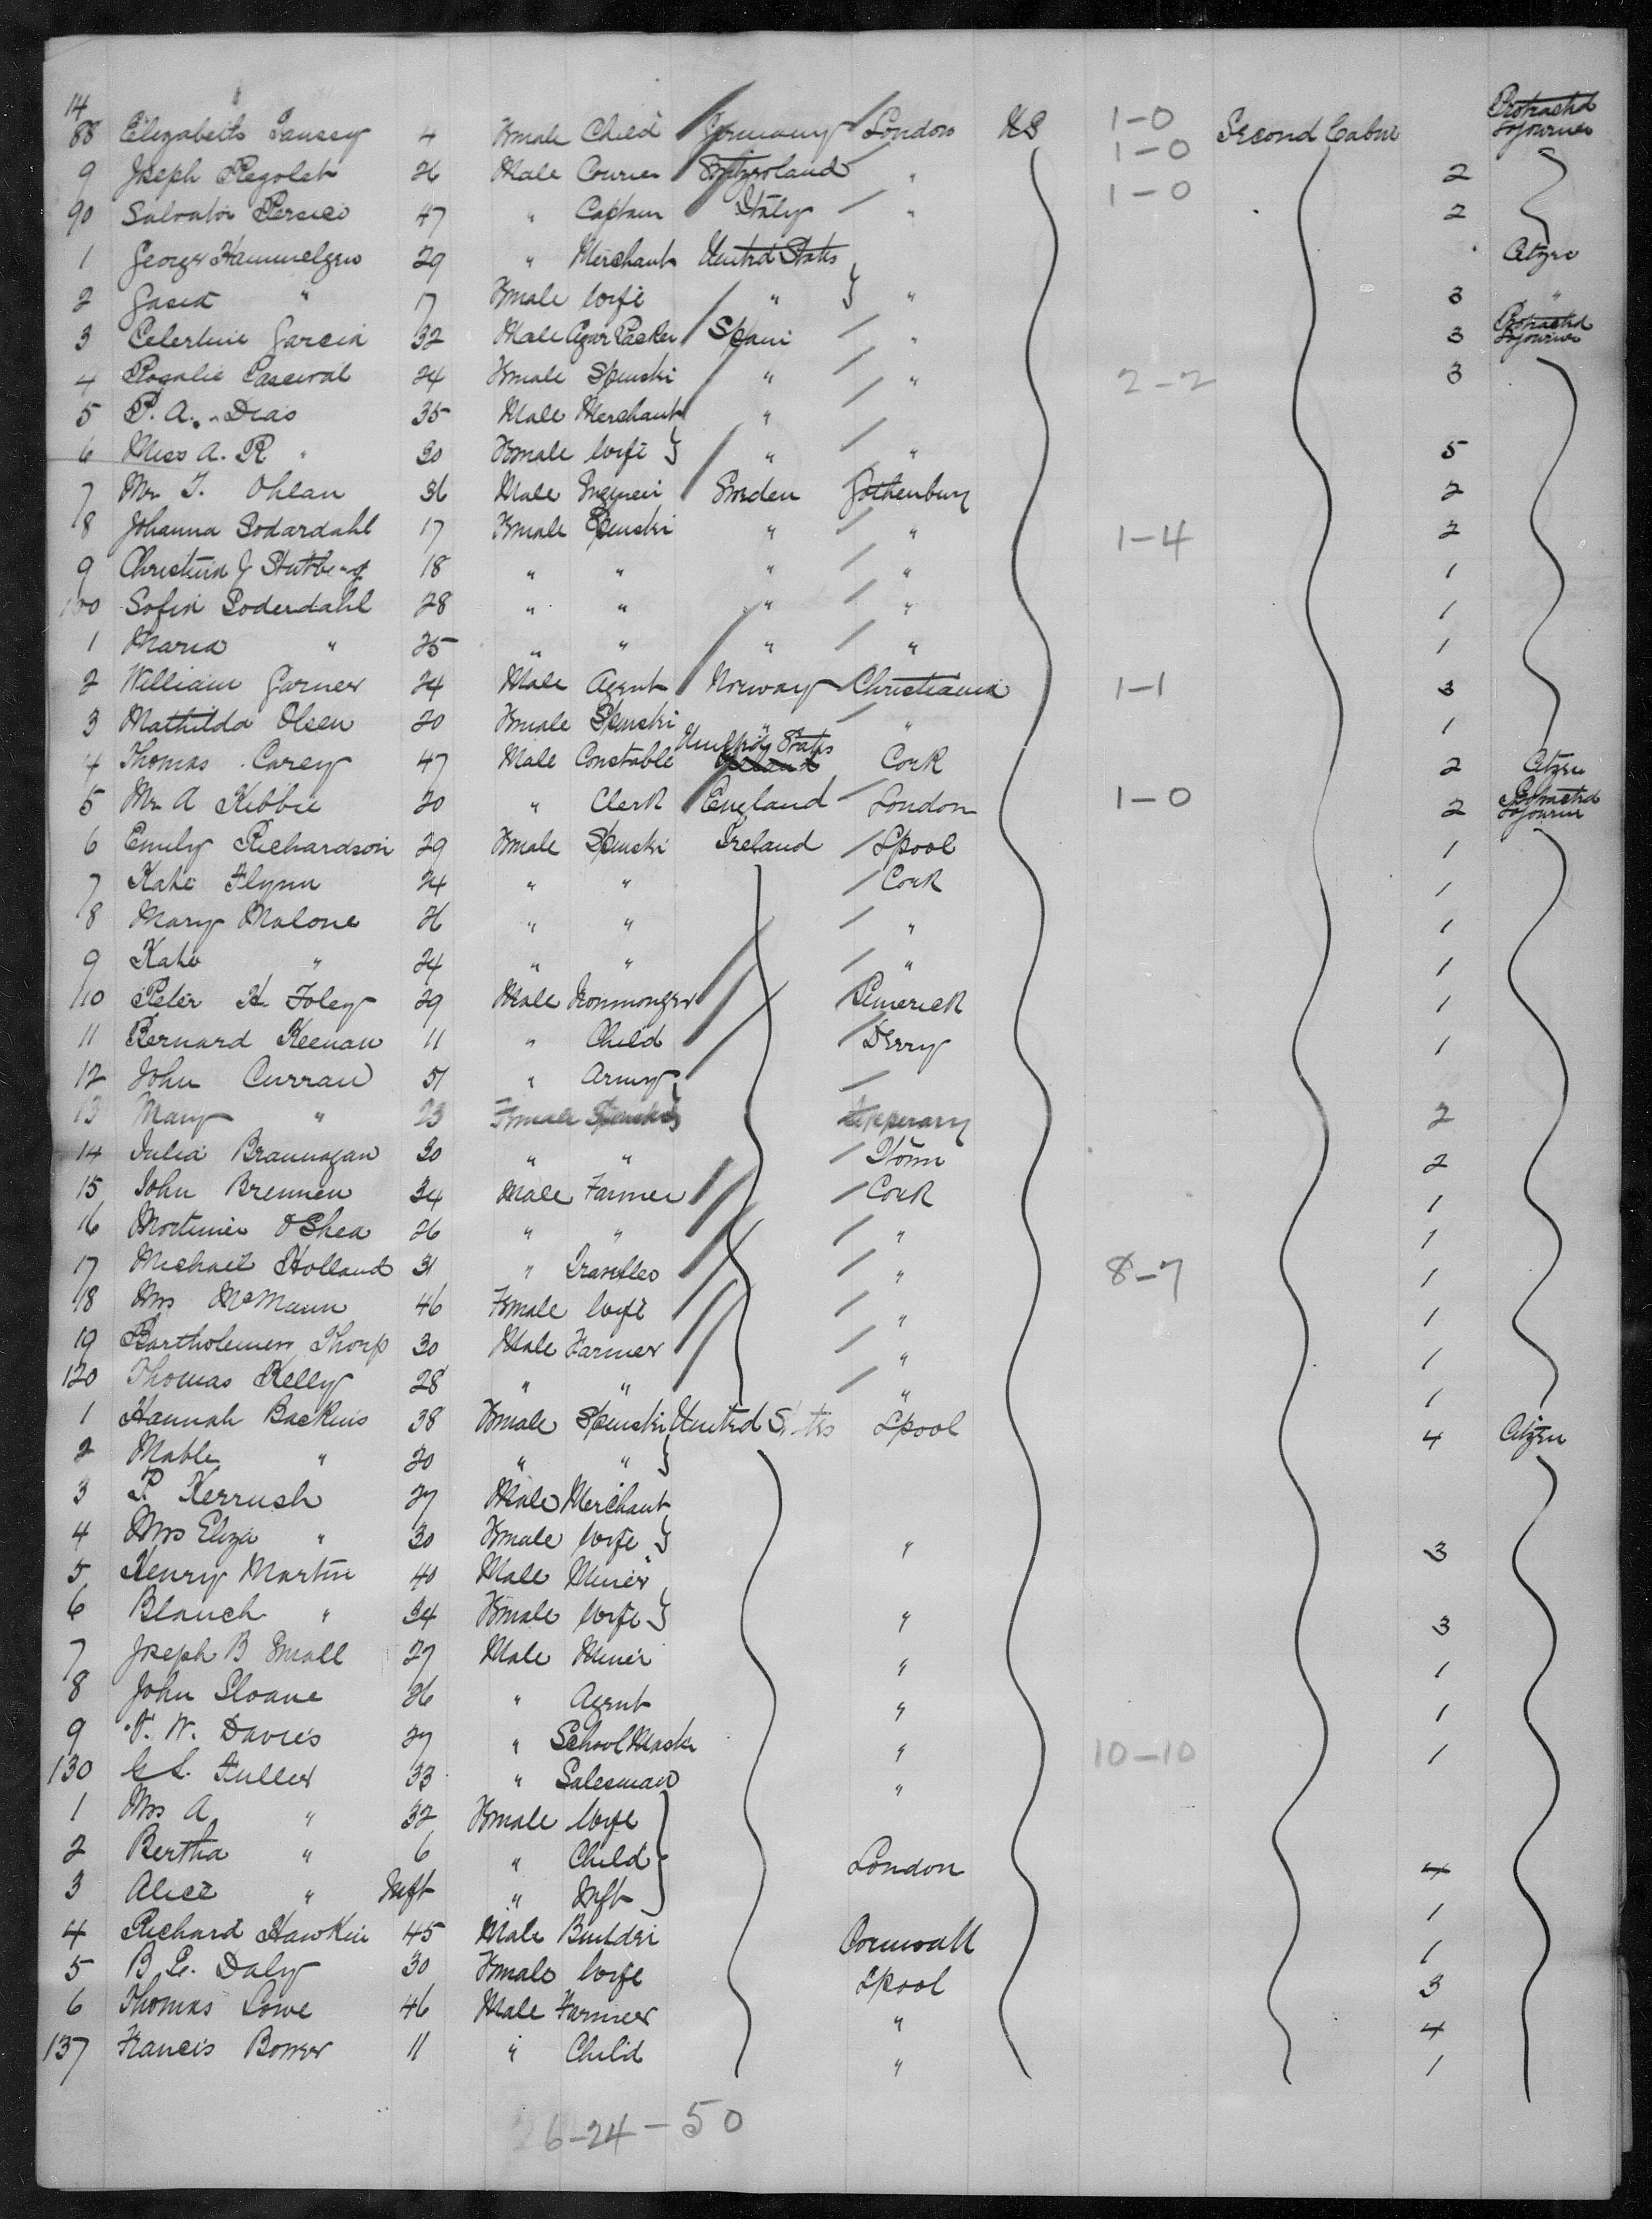 14 "
88 Elizabeth 4 Female Child Germany London US 1-0 Second Cabin Protracted Sojourner
9 Joseph Regolet 26 Male Courier Switzerland " 1-0 2
90 Salvator Persico 47 " Captain Italy " 1-0 2
1 George Hammelgrew 29 " Merchant United States Citzen
2 " 17 Female Wife " " 3 "
3 Celertine Garcia 32 Male Cigar Packer Spain " 3 Protracted Sojourner
4 Rogalie Pasceval 24 Female Spinster " " 2-2 3
5 P. A. Dias 35 Male Merchant "
6 Miss A. R " 30 Female Wife " " 5
7 Mr T. Ohlan 36 Male Sweden Gothenburg 2
8 Johanna Sodardahl 17 Female Spinster " " 1-4 2
9 Christina J Stutberg 18 " " " " 1
100 Sofia Soderdahl 28 " " " " 1
1 Maria " 25 " " " " 1
2 William Garner 24 Male Agent Norway Christiania 1-1 3
3 Mathilda Olsen 20 Female Spinster " " 1
United States
4 Thomas Carey 47 Male Constable Ireland Cork 2 Citzen
5 Mr A Kibbie 20 " Clerk England London 1-0 2 Protracted Sojourner
6 Emily Richardson 29 Female Spinster Ireland Lpool 1
7 Kate Flynn 24 " " Cork 1
8 Mary Malone 26 " " " 1
9 Kate " 24 " " " 1
110 Peter H Foley 29 Male Ironmonger Limerick 1
11 Bernard Keenan 11 " Child Derry 1
12 John Curran 51 " Army
13 Mary " 23 Female Spinster Tipperary 2
14 Julia Brannagan 30 " " 2
15 John Brennen 34 Male Farmer Cork 1
16 Mortimer O'Shea 26 " " " 1
17 Michael Holland 31 " " 8-7 1
18 Mrs McMann 46 Female Wife " 1
19 Bartholemew Thorp 30 Male Farmer " 1
120 Thomas Kelly 28 " " " 1
1 Hannah Backus 38 Female Spinster United States Lpool 4 Citzen
2 Mable " 20 " "
3 P. Kerrush 27 Male Merchant
4 Mrs Eliza " 30 Female Wife " 3
5 Henry Martin 40 Male Miner
6 Blanch " 34 Female Wife " 3
7 Joseph B Small 27 Male Miner " 1
8 John Sloane 26 " Agent " 1
9 W. Davies 27 " School Master " 10-10 1
130 Fuller 33 " Salesman "
1 Mrs A " 32 Female Wife
2 Bertha " 6 " Child London 4
3 Alice " Inft " Inft
4 Richard Hawkin 45 Male Builder Cornwall 1
5 B. E. Daly 30 Female Wife Lpool 1
6 Thomas Lowe 46 Male Farmer " 3 4
137 Francis Bomer 11 " Child " 1
26-24-50